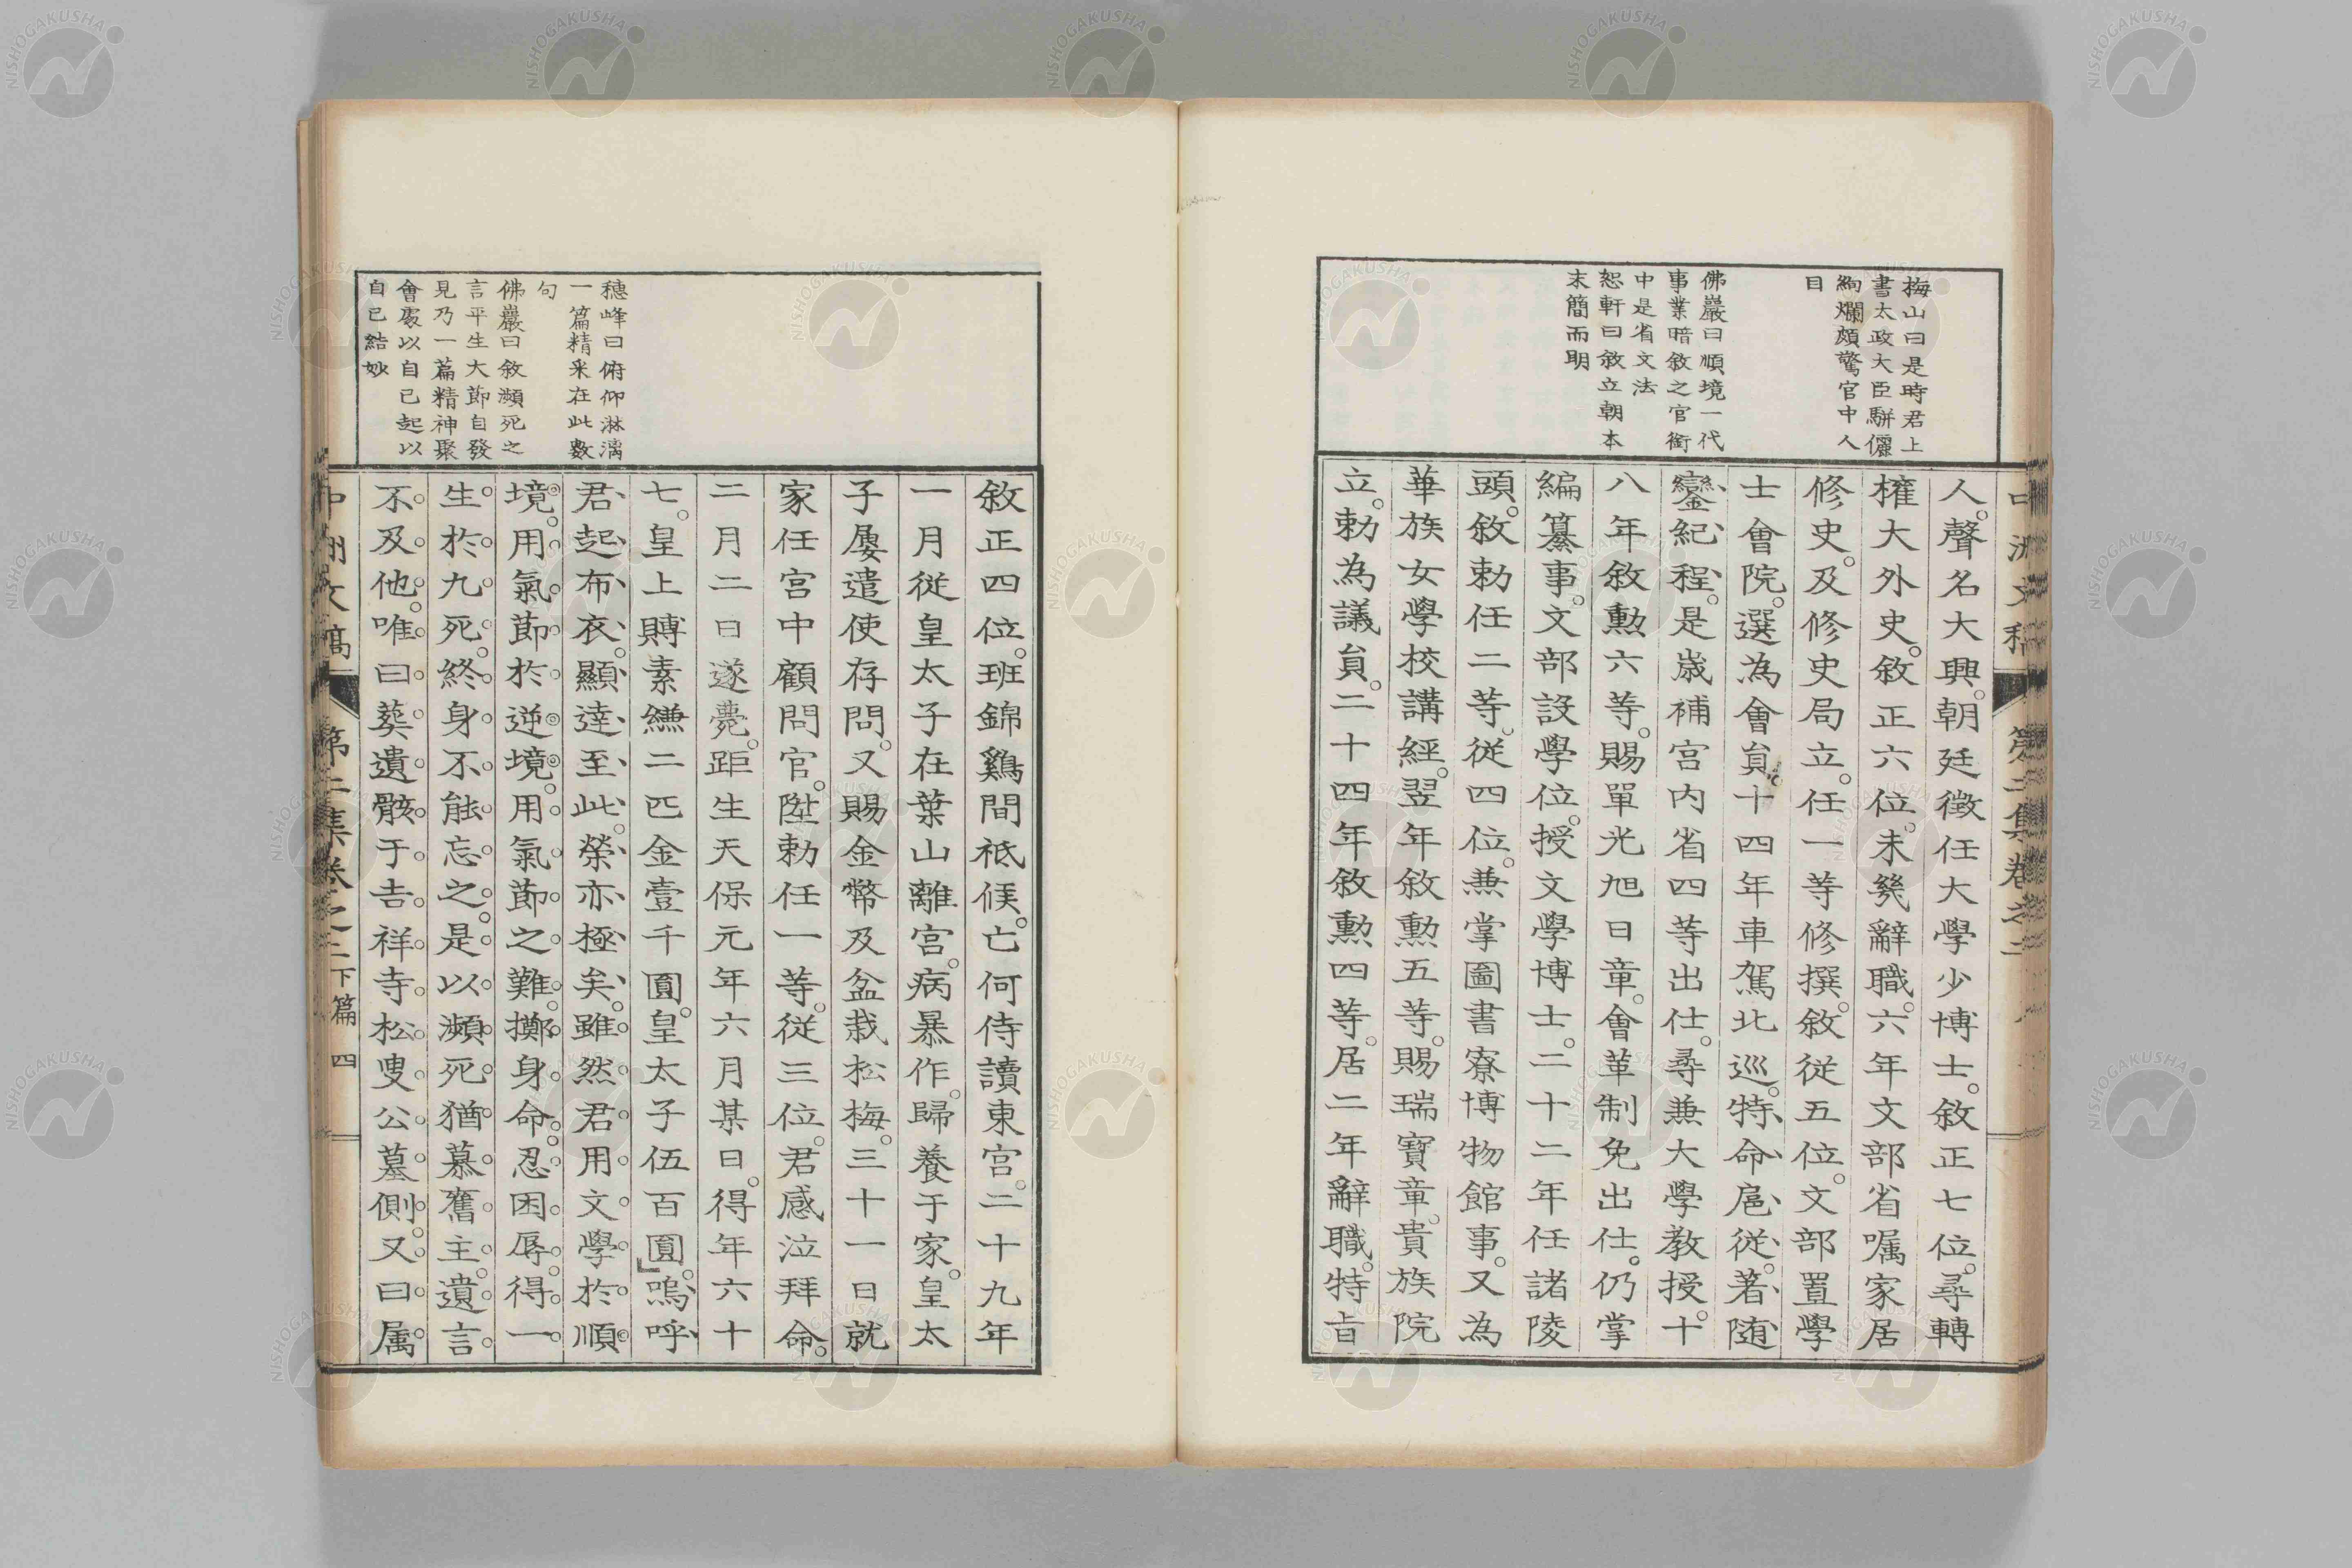 梅山曰是時君上
書太政大臣駢儷
絢爛頗驚官中人
目
佛巖曰順境一代
事業暗敘之官銜
中是省文法
恕軒曰敘立朝本
末簡而明
人。聲名大興。朝廷徵任大學少博士。敘正七位。尋轉
權大外史。敘正六位。未幾辭職。六年文部省嘱家居
修史。及修史局立。任一等修撰。敘従五位。文部置學
士會院。選為會員。十四年車駕北巡。特命扈従。著随
鑾紀程。是歳補宮内省四等出仕。尋兼大學教授。十
八年敘勲六等。賜單光旭日章。會革制免出仕。仍掌
編纂事。文部設學位。授文學博士。二十二年任諸陵
頭。敘勅任二等。従四位。兼掌圖書寮博物館事。又為
華族女學校講經。翌年敘勲五等。賜瑞寶章。貴族院
立。勅為議員。二十四年敘勲四等。居二年辭職。特旨
穗峰曰俯仰淋漓
一篇精采在此數
句
佛巖曰敘瀕死之
言平生大節自發
見乃一篇精神聚
會處以自己起以
自己結妙
敘正四位。班錦鷄間祗候。亡何侍讀東宮。二十九年
一月従皇太子在葉山離宮。病暴作。歸養于家。皇太
子屢遣使存問。又賜金幣及盆栽松梅。三十一日就
家任宮中顧問官。陞勅任一等。従三位。君感泣拜命。
二月二日遂薨。距生天保元年六月某日。得年六十
七。皇上賻素縑二匹金壹千圓。皇太子伍百圓。」嗚呼
君起布衣。顯達至此。榮亦極矣。雖然君用文學於順
境。用氣節於逆境。用氣節之難。擲身命。忍困辱。得一
生於九死。終身不能忘之。是以瀕死猶慕舊主。遺言
不及他。唯曰葬遺骸于吉祥寺松叟公墓側。又曰属
文稿 第二集卷之二下篇 四